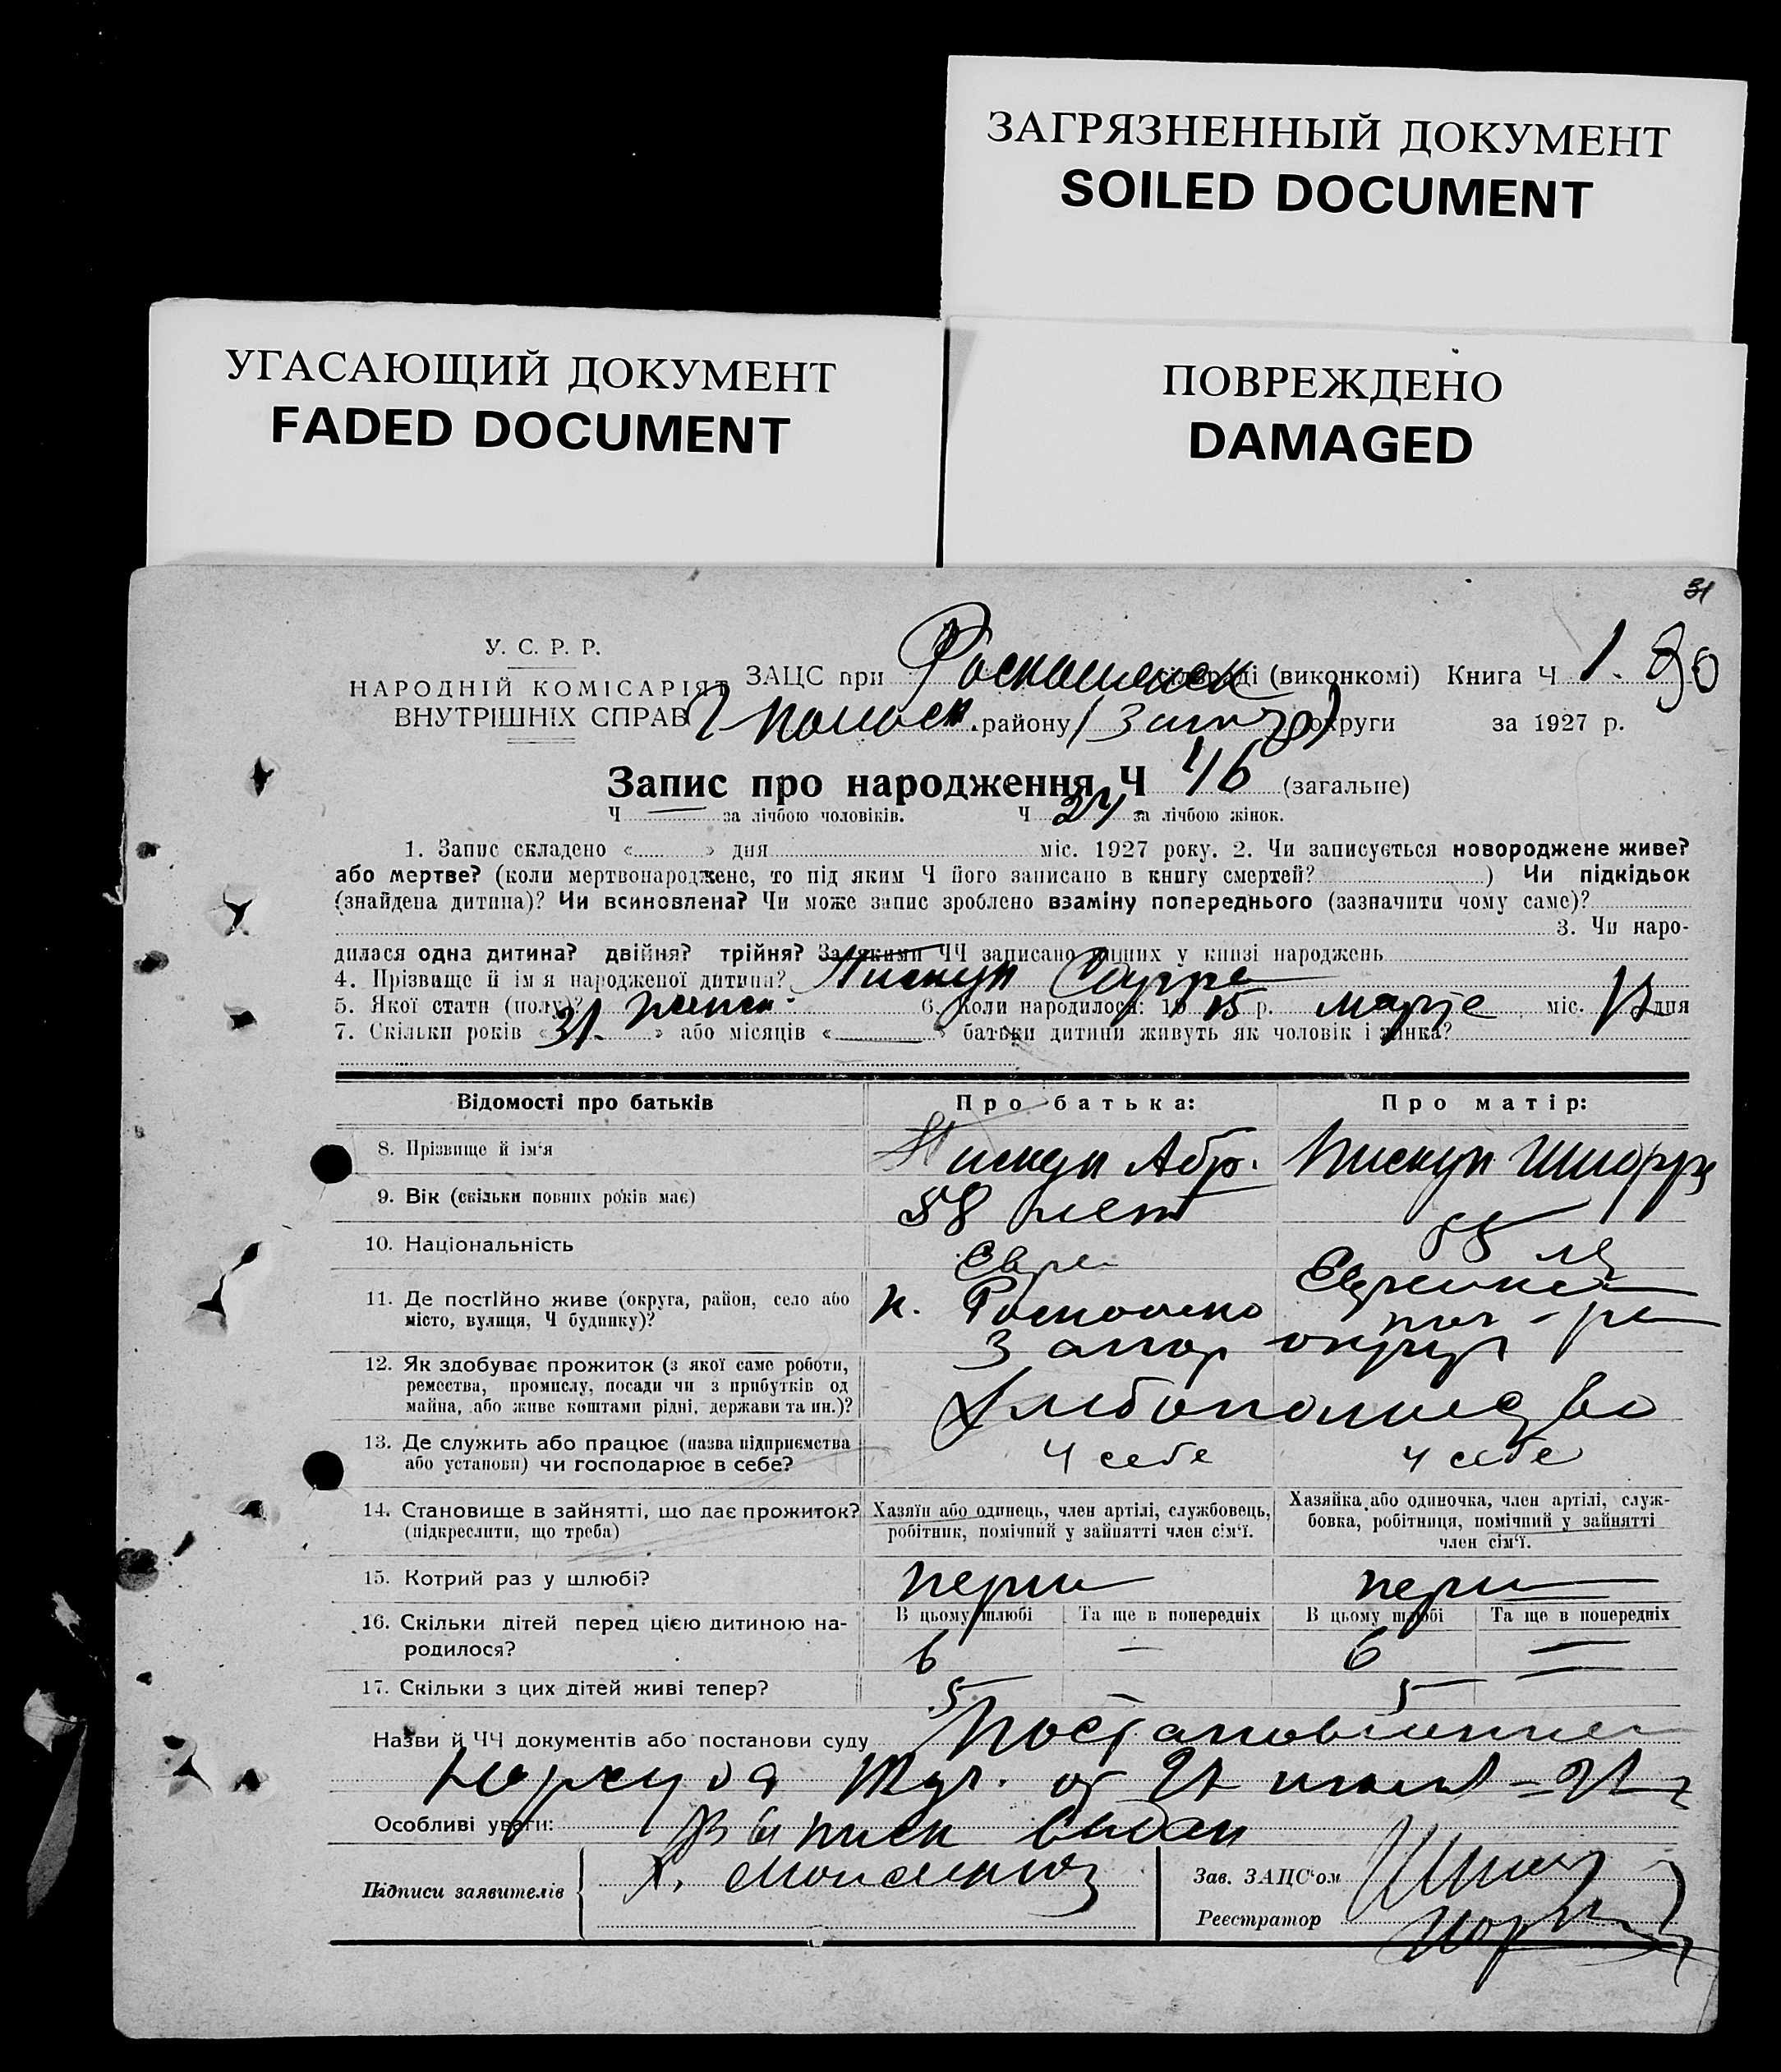 ЗАГРЯЗНЕННЫЙ ДОКУМЕНТ
SOILED DOCUMENT
УГАСАЮЩИЙ ДОКУМЕНТ
FADED DOCUMENT
ПОВРЕЖДЕНО
DAMAGED
31
У. С. Р. Р.
НАРОДНІЙ КОМІСАРІЯТ
ВНУТРІШНІХ СПРАВ
ЗАЦС при (виконкомі) Книга Ч 1.
району округи за 1927 р.
Запис про народження Ч 46 (загальне)
Ч — за лічбою чоловіків. Ч за лічбою жінок.
1. Запис складено « » дня міс. 1927 року. 2. Чи записується новороджене живе?
або мертве? (коли мертвонароджене, то під яким Ч його записано в книгу смертей? ) Чи підкідьок
(знайдена дитина)? Чи всиновлена? Чи може запис зроблено взаміну попереднього (зазначити чому саме)?
3. Чи наро-
дилася одна дитина? двійня? трійня? За якими ЧЧ записано инших у книзі народжень
4. Прізвище й ім'я народженої дитини? Пискун Сарра
5. Якої стати (полу)? женск. 6. Коли народилося: 19 15 р. марте міс. 17 дня
7. Скільки років « 31 » або місяців « — » батьки дитини живуть як чоловік і жінка?
Відомості про батьків
Про батька:
Про матір:
8. Прізвище й ім'я
Пискун Абр.
Пискун
9. Вік (скільки повних років має)
58 лет
55
10. Національність
Еврей
Еврейка
11. Де постійно живе (округа, район, село або
місто, вулиця, Ч будинку)?
Запор округ
12. Як здобуває прожиток (з якої саме роботи,
ремества, промислу, посади чи з прибутків од
майна, або живе коштами рідні, держави та ин.)?
13. Де служить або працює (назва підприємства
або установи) чи господарює в себе?
У себе
У себе
14. Становище в зайнятті, що дає прожиток?
(підкреслити, що треба)
Хазяїн або одинець, член артілі, службовець,
робітник, помічний у зайнятті член сім'ї.
Хазяйка або одиночка, член артілі, служ-
бовка, робітниця, помічний у зайнятті
член сім'ї.
15. Котрий раз у шлюбі?
перш
перш
16. Скільки дітей перед цією дитиною на-
родилося?
В цьому шлюбі
Та ще в попередніх
В цьому шлюбі
Та ще в попередніх
6
—
6
—
17. Скільки з цих дітей живі тепер?
5
—
5
—
Назви й ЧЧ документів або постанови суду
Нарсуда от
Особливі уваги: выдан
Підписи заявителів
Зав. ЗАЦС'ом
Реєстратор